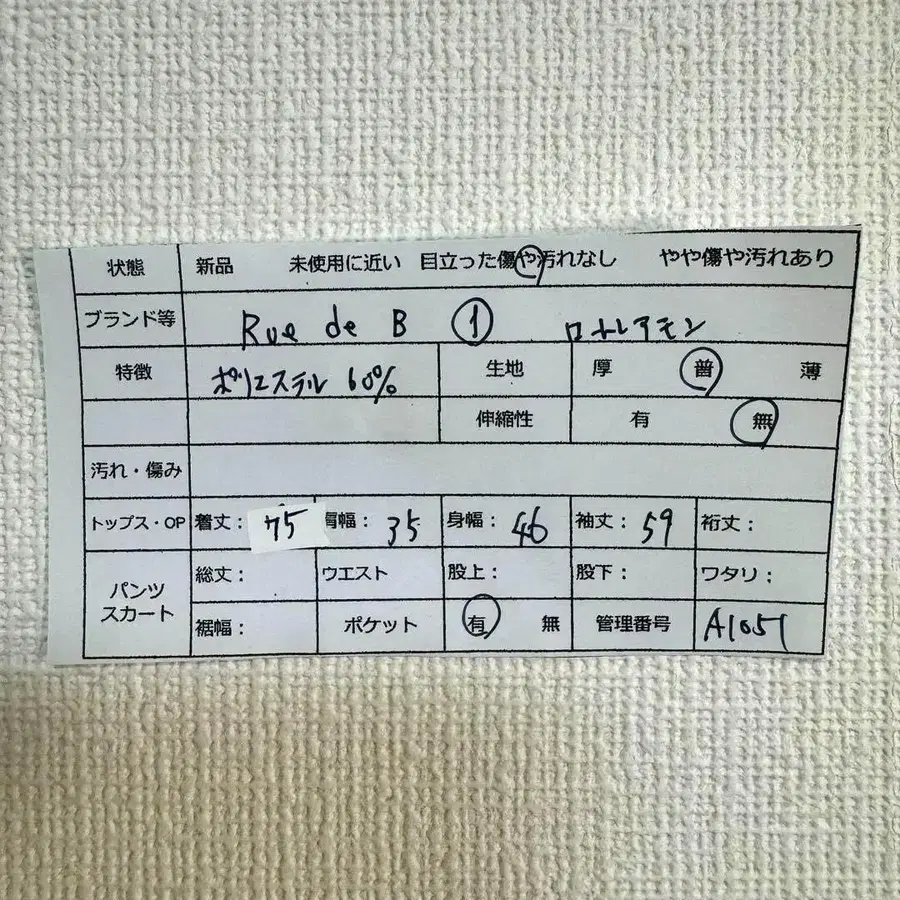 状態 新品 未使用に近い 目立った傷や汚れなし やや傷や汚れあり
ブランド等 Rue de B ① ロートレアモン
特徴 ポリエステル 60% 生地 厚 普 薄
伸縮性 有 無
汚れ・傷み
トップス・OP 着丈: 75 肩幅: 35 身幅: 46 袖丈: 59 裄丈:
パンツ スカート 総丈: ウエスト 股上: 股下: ワタリ:
裾幅: ポケット 有 無 管理番号 A1051